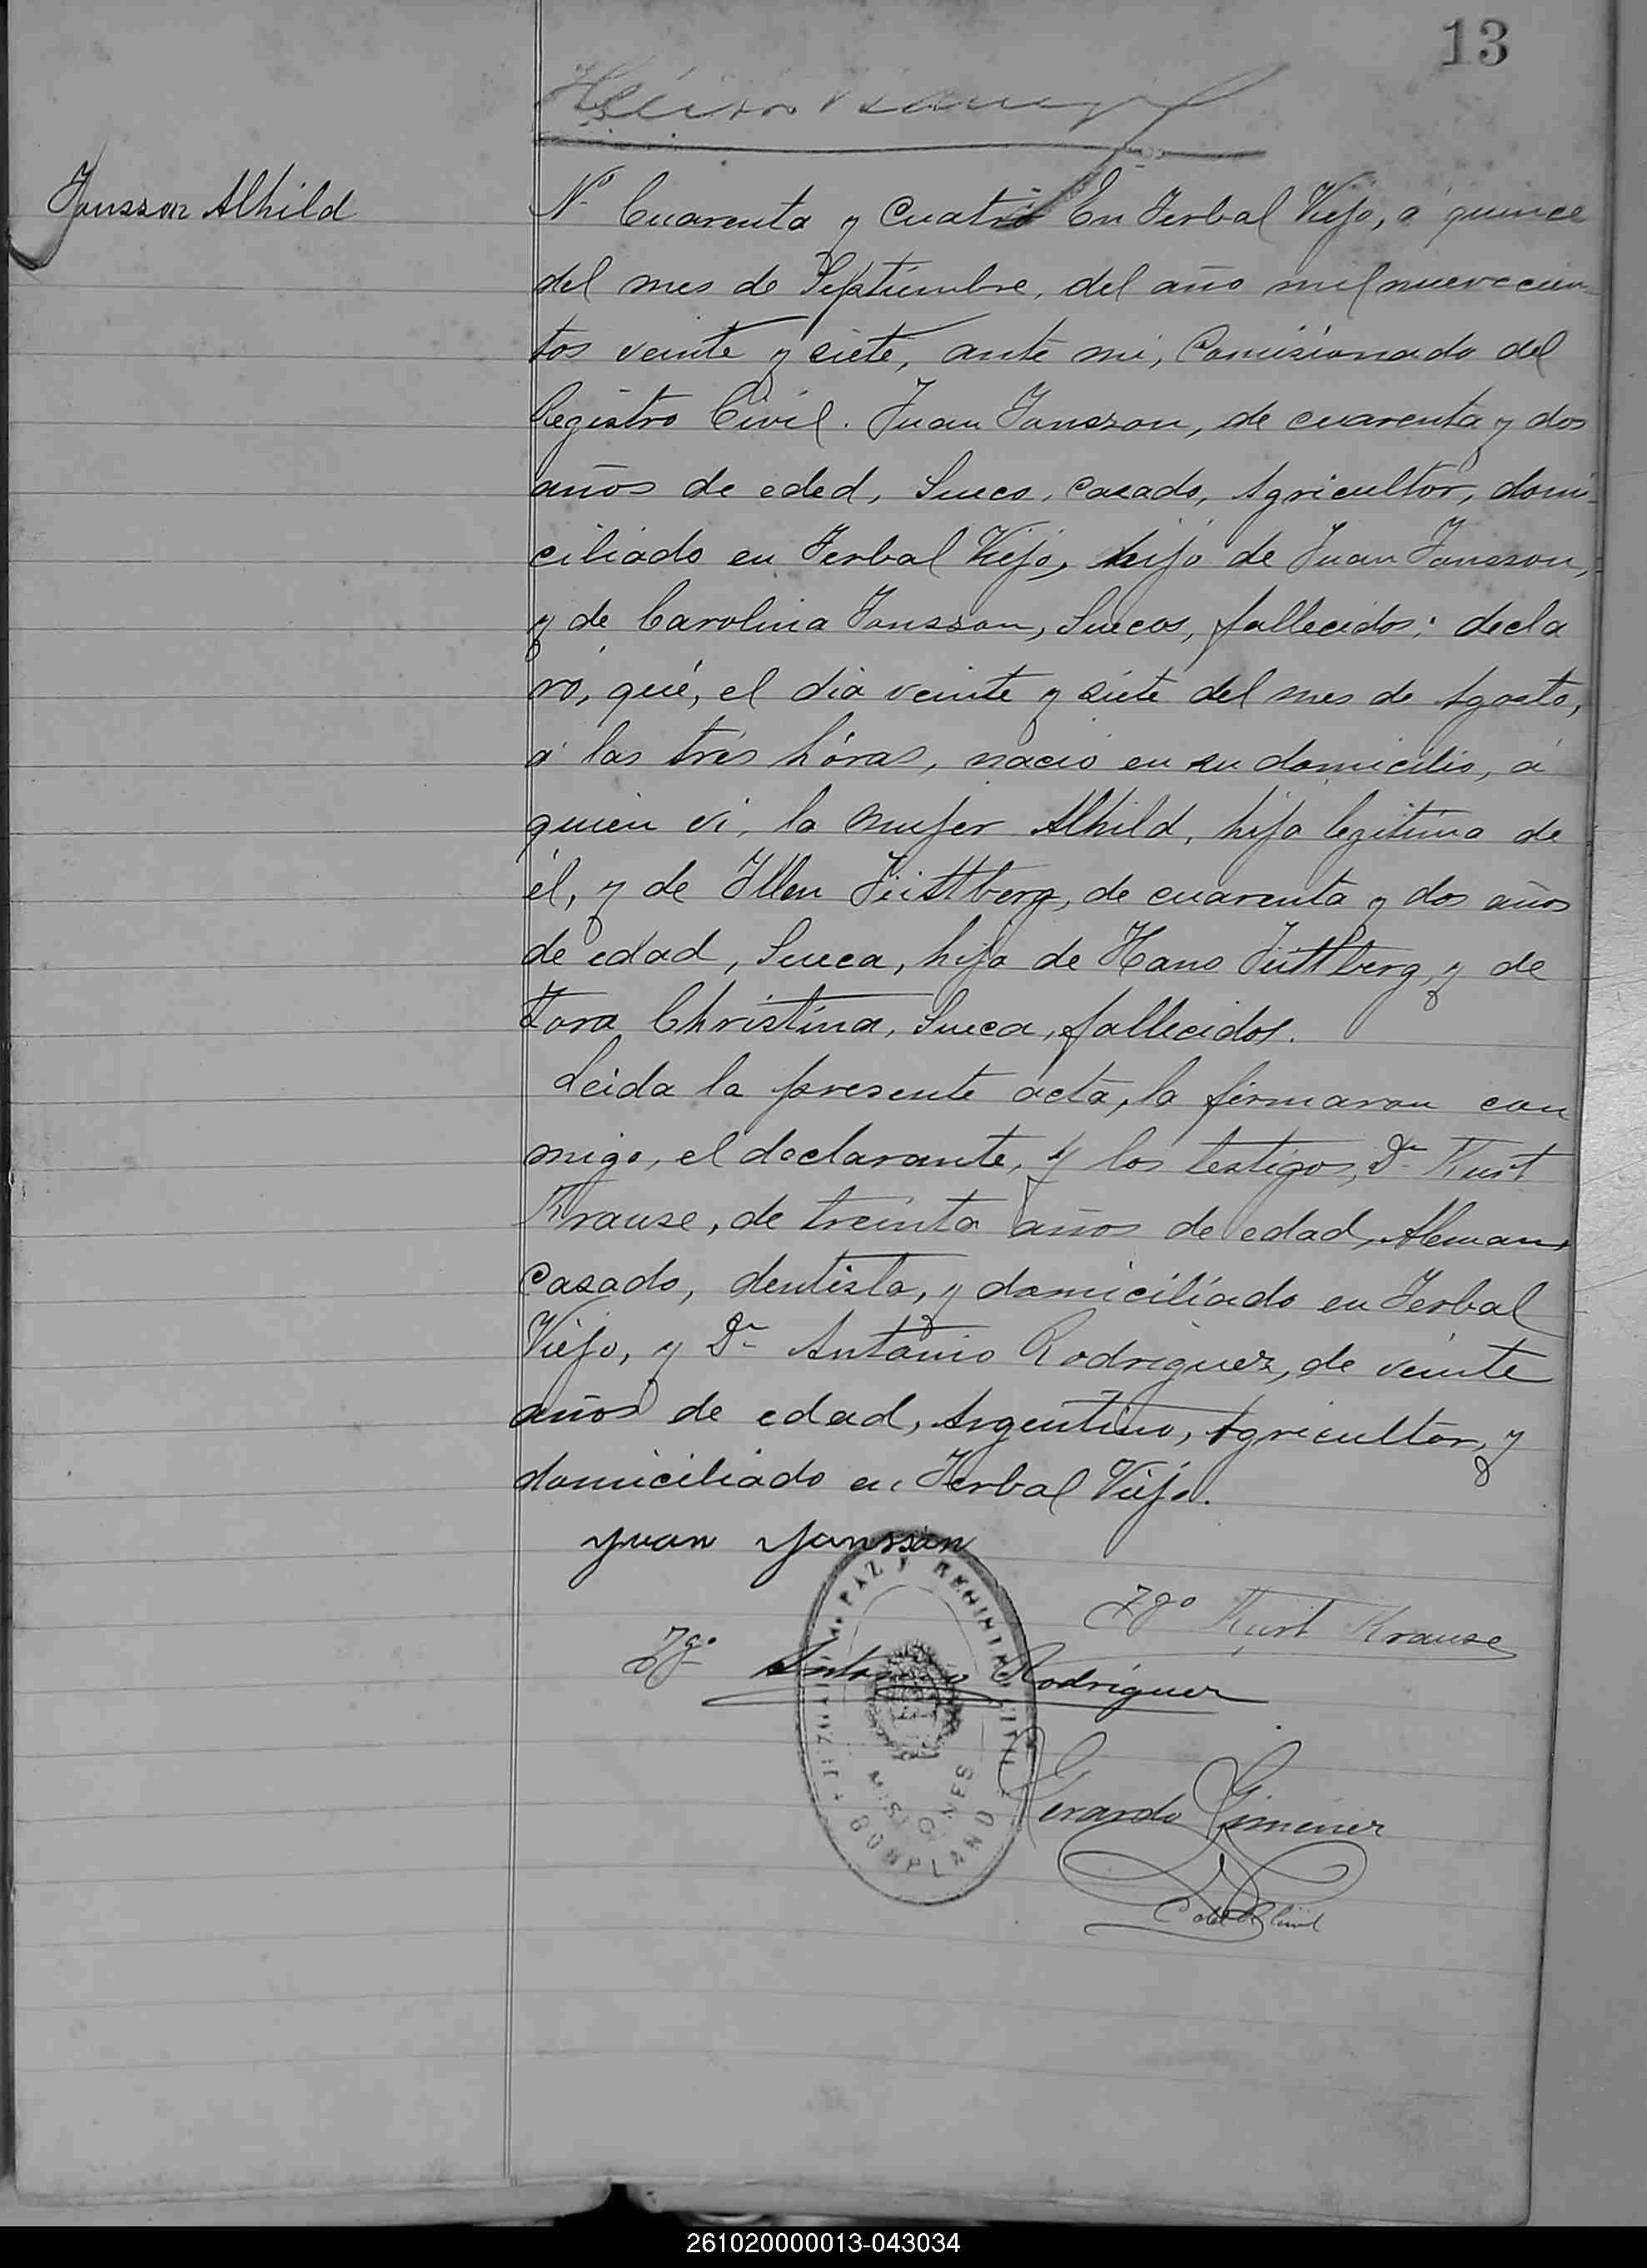 13
Jansson Alhild
Nº Cuarenta y Cuatro En Yerbal Viejo, á quince
del mes de Septiembre, del año mil nuevecien-
tos veinte y siete, ante mi, Comisionado del
Registro Civil. Juan Jansson, de cuarenta y dos
años de eded, Sueco, casado, Agricultor, domi-
ciliado en Yerbal Viejo, hijo de Juan Jansson,
y de Carolina Jansson, Suecos, fallecidos; decla
ró, qué, el dia veinte y siete del mes de Agosto,
á las tres hóras, nació en su domicilio, á
quien vi, la mujer Alhild, hija legitima de
él, y de Ellen Jüttberg, de cuarenta y dos años
de edad, Sueca, hija de Hans Jüttberg, y de
Tora Christina, Sueca, fallecidos.
Leida la presente acta, la firmaron con
migo, el declarante, y los testigos, Dn Kurt
Krause, de treinta años de edad, Aleman,
Casado, dentista, y domiciliado en Yerbal
Viejo, y Dn Antonio Rodriguez, de veinte
años de edad, Argentino, Agricultor, y
domiciliado en Yerbal Viejo.
Yvan Jansson
Tgo Kurt Krause
Tgo Antonio Rodriguez
JUZGADO DE PAZ Y REGISTRO CIVIL
MISIONES
BONPLAND
Gerardo Gimenez
C del R Civil
261020000013-043034